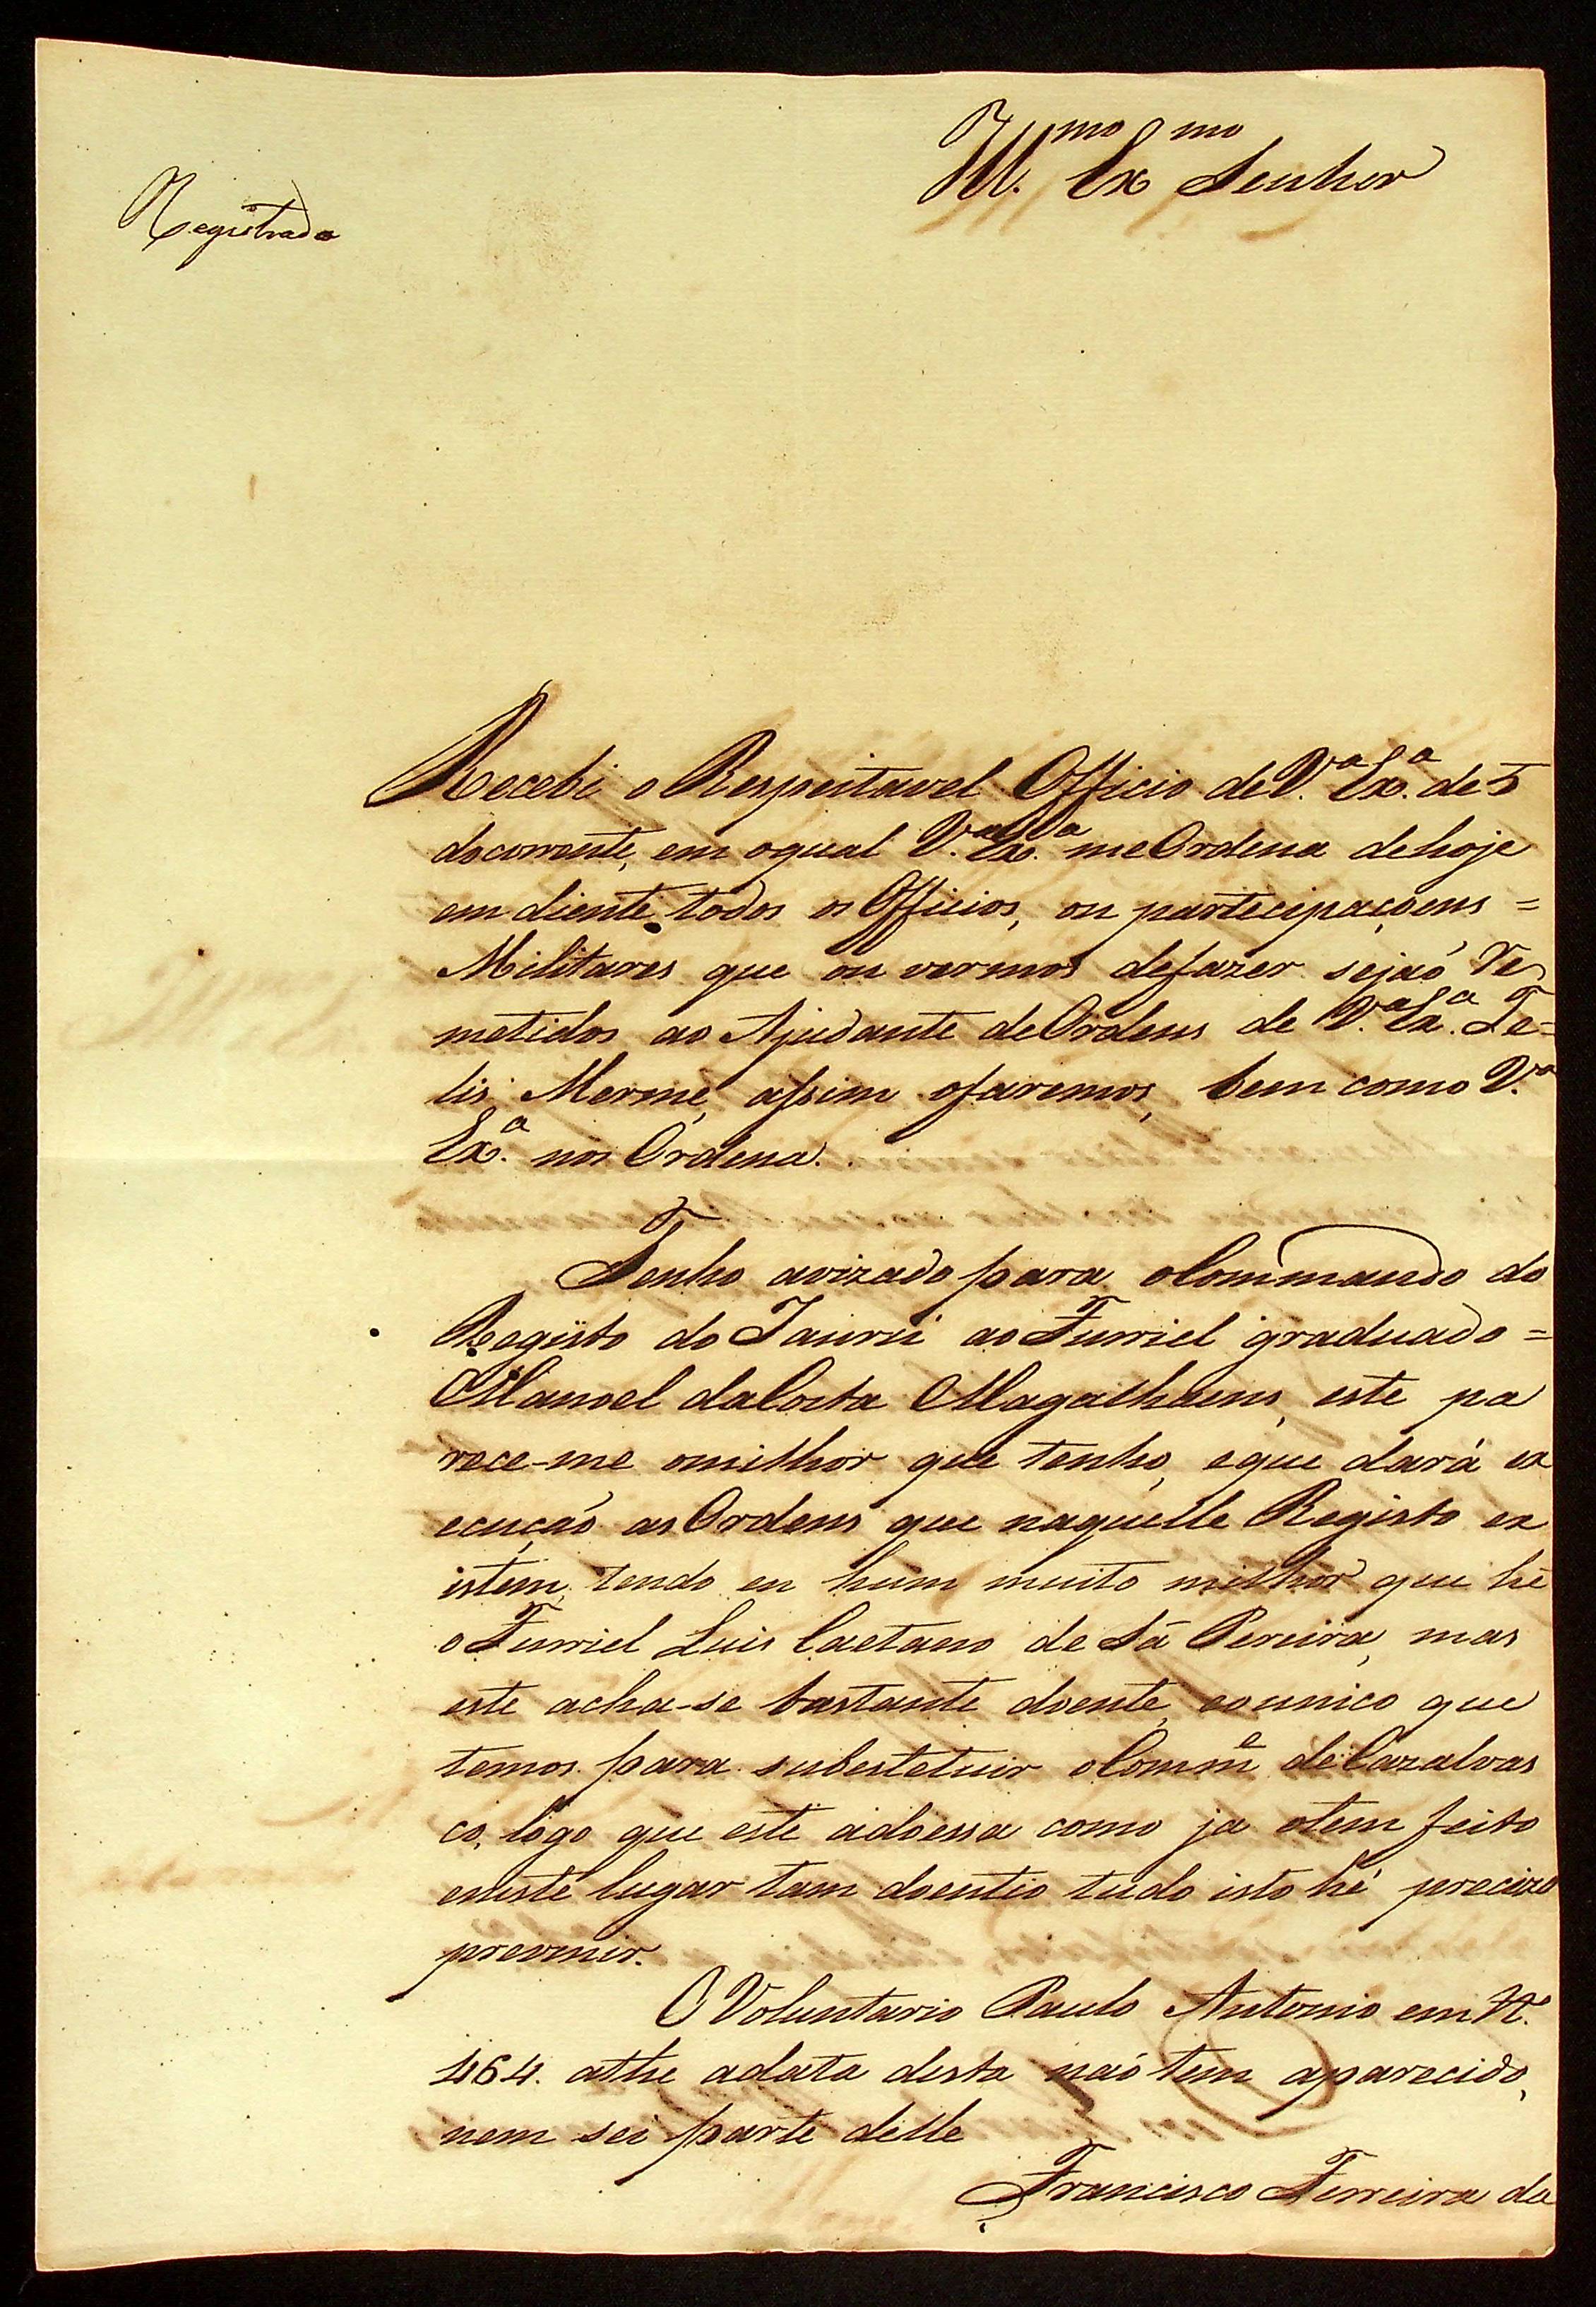 Ill.mo Ex mo Senhor
Registrado
Recebi o Respeitavel Officio de V.a Ex.a de 5
do corrente, em o qual V.a Ex.a me Ordena de hoje
em diente todos os Officios, ou partecipaçoens =
Militares que ou vermos de fazer sejaó Re
metidos ao Ajudante de Ordens de V.a Ex.a Fe=
lis Merme, assim ofaremos, bem como V.a
Ex.a nos Ordena.
Tenho avizado para o Commando do
Registo do Jaurú ao Furriel graduado =
Manoel da Costa Magalhaens, este pa
rece-me omilhor que tenho, e que dará ex
ecuçaó as Ordens que naquelle Registo ex
istem, tendo eu hum muito milhor que hé
o Furriel Luis Caetano de Sá Pereira, mas
este acha-se bastante doente, eounico que
temos para subestetuir o Comm.e de Cazalvas
co, logo que este adoessa como ja otem feito
eneste lugar tam doentio tudo isto hé precizo
prevenir.
O Voluntario Paulo Antonio em N.o
464. athe adata desta naó tem aparecido,
nem sei parte delle
Francisco Ferreira da